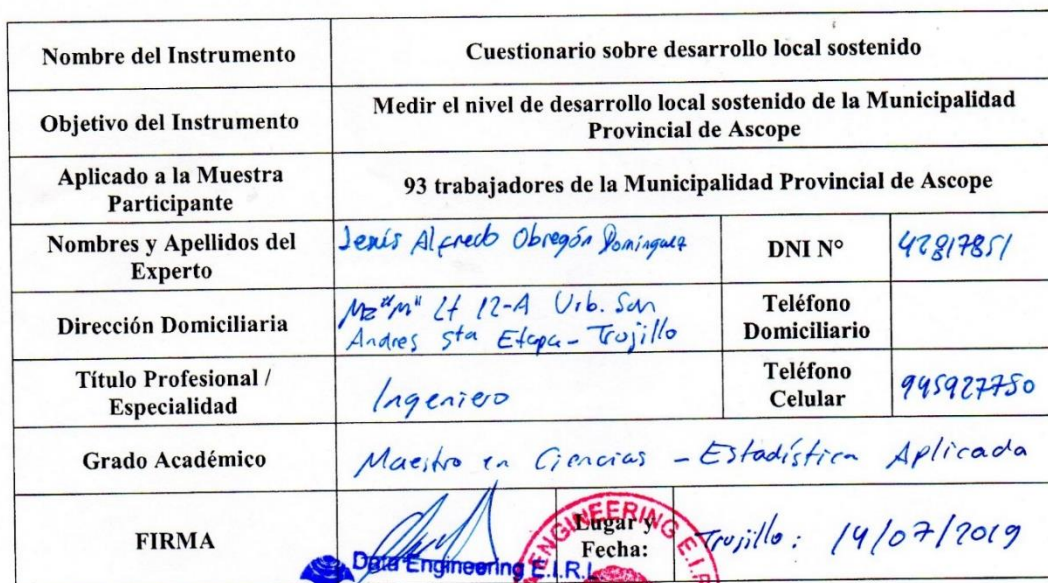 Nombre del Instrumento
Cuestionario sobre desarrollo local sostenido
Objetivo del Instrumento
Medir el nivel de desarrollo local sostenido de la Municipalidad
Provincial de Ascope
Aplicado a la Muestra
Participante
93 trabajadores de la Municipalidad Provincial de Ascope
Nombres y Apellidos del
Experto
Jesús Alfredo Obregón Domínguez
DNI N°
42817851
Dirección Domiciliaria
Mz "M" Lt 12-A Urb. San
Andres 5ta Etapa - Trujillo
Teléfono
Domiciliario
Título Profesional /
Especialidad
Ingeniero
Teléfono
Celular
945927750
Grado Académico
Maestro en Ciencias - Estadística Aplicada
FIRMA
Data Engineering E.I.R.L
Lugar y
Fecha:
Trujillo: 14/07/2019
ENGINEERING E.I.R